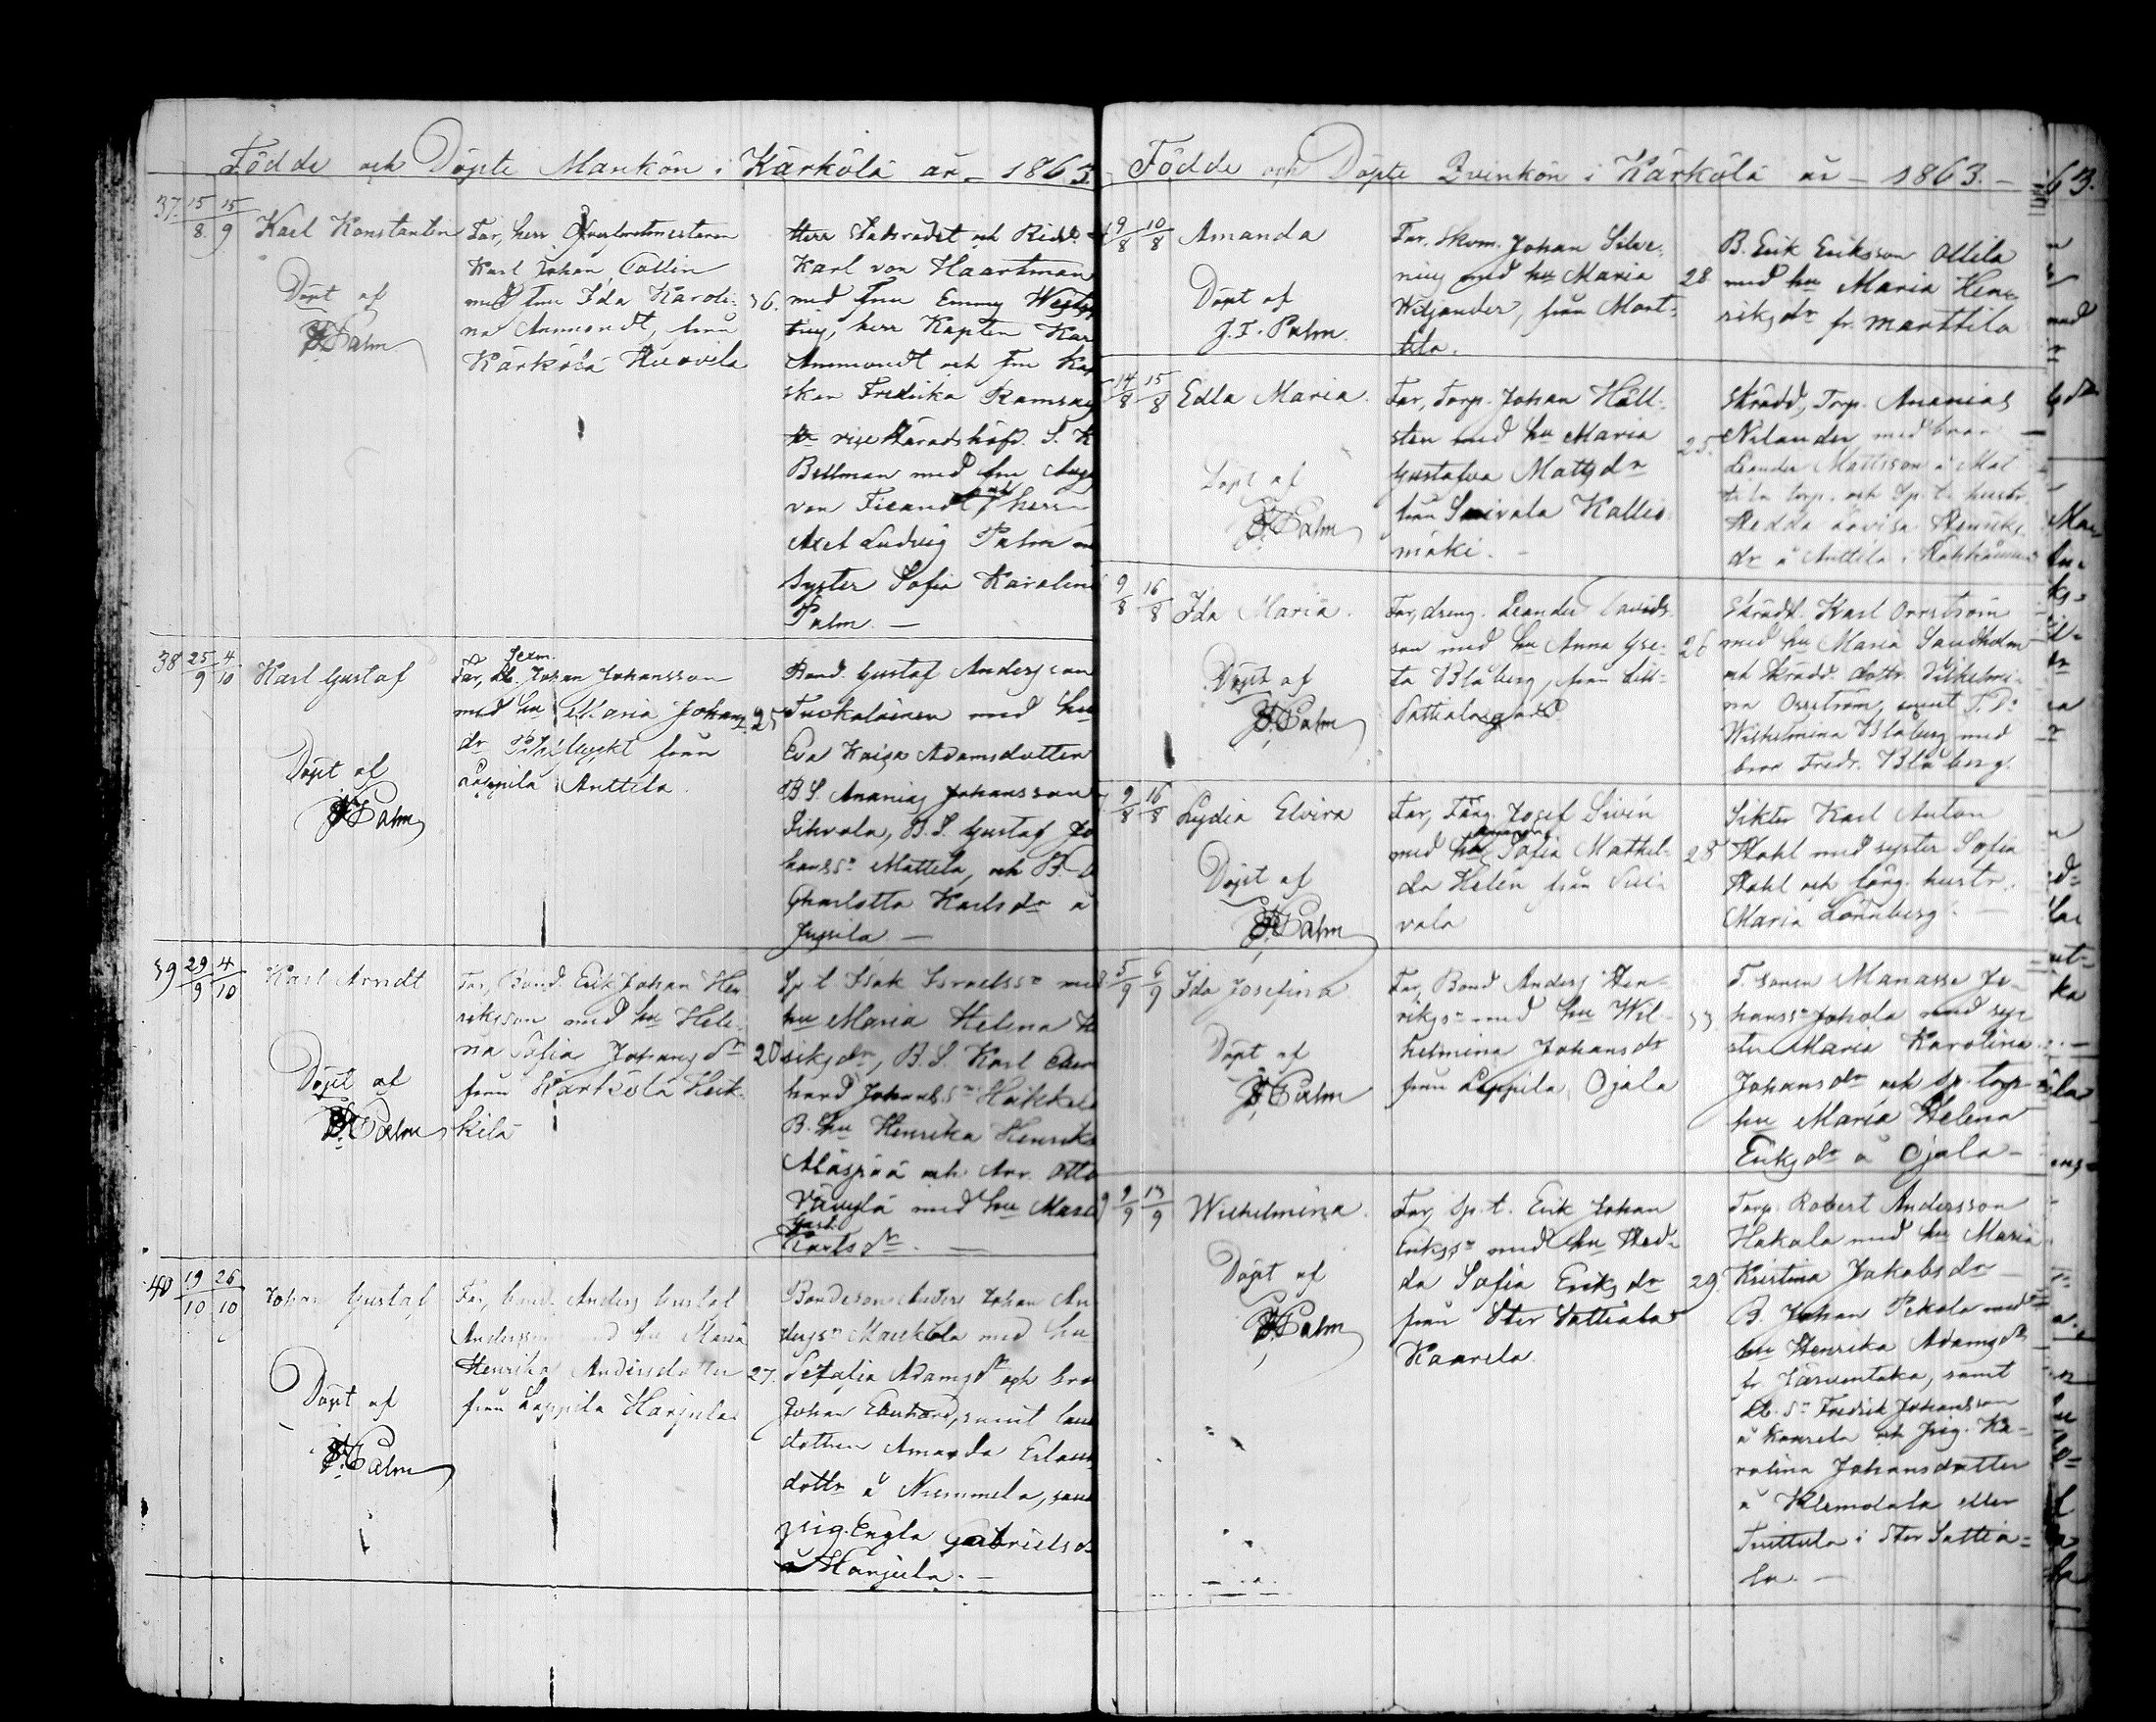 Födde och Döpte Mankön i Kärkölä år 1863.
37. 15/8 15/9 Karl Konstantin
Döpt af
Palm
Far, herr
Karl Johan Collin
med fru Ida Karoli-
na Ammondt, från
Kärkölä Huovila
36.
Herr Statsrådet och Ridd.
Karl von Haartman
med fru Emmy
herr Kapten Kar
Ammondt och fru Kap
skan Fredrika Ramsay
vice Häradshöfd. S. K
Bellman med fru Aug
von Fieandt, och herr
Axel Ludvig Palm
syster Sofia Karolin
Palm. —
38 25/9 4/10 Karl Gustaf
Döpt af
Palm
Far, Johan Johansson
med hu Maria Johans
dr från
Lappila Anttila.
25
Bond. Gustaf Andersson
Tuokolainen med hu
Eva Kaisa Adamsdotter
B.S. Ananias Johansson
Sihvola, B.S. Gustaf Jo
hanss. Mattila, och B. D
Charlotta Karlsdr å
Jussila —
39 29/9 4/10 Karl Arndt
Döpt af
Palm
Far, Bond. Erik Johan Hen
riksson med hu Hele-
na Sofia Johansdr
från Kärkölä Heik-
kilä
20
Sp.t. Isak Israelss. med
hu Maria Helena He
riksdr, B.S. Karl Eber
hard Johanss. Heikkilä
B. hu Henrika Henriks
Alaspää och Arr. Otto
med hu Maria
Gust.
Karlsdr. —
40 19/10 26/10 Johan Gustaf
Döpt af
Palm
Far, bond. Anders Gustaf
Andersson med hu Maria
Henrika Andersdotter
från Lappila Harjula
27.
Bondeson Anders Johan An
derss. Markkola med hu
Adamsdr och bro
Johan Eberhard, samt
dottren Amanda Erlan
dottr å Niemmela, sam
pig. Engla Gabrielsd
å Harjula. —
Födde och Döpte Qvinkön i Kärkölä år — 1863. —
9/8 10/8 Amanda
Döpt af
J. I. Palm.
Far, Skom. Johan Silve-
nius med hu Maria
Wiljander, från Mart-
tila.
28.
B. Erik Eriksson Ollila
med hu Maria Hen-
riksdr fr. Marttila
14/8 15/8 Edla Maria.
Döpt af
Palm
Far, Torp. Johan Häll-
sten med hu Maria
Gustafva Mattsdr
från Kallio
mäki. —
25.
Skrädd. Torp. Ananias
Nilander med bror
Leander Mattsson å Mat
tila torp. och Sp. t. hustr.
Hedda Lovisa Henriks
dr å Anttila i
9/8 16/8 Ida Maria.
Döpt af
Palm
Far, dreng. Leander Davids
son med hu Anna Gre-
ta Blåberg, från Lill-
Sattiala
26
Skrädd. Karl Orrström
med hu Maria Sandholm
och Skrädd. dottr. Vilhelmi-
na Orrström, samt
Wilhelmina Blåberg med
bror Fredr. Blåberg.
9/8 16/8 Lydia Elvira
Döpt af
Palm
Far, Färg. Josef Sivén
med hu Sofia Mathil-
da Helén från
vala
28
Sikter Karl Anton
Stahl med syster Sofia
Stahl och färg. hustr.
Maria Lönnberg. —
5/9 6/9 Ida Josefina.
Döpt af
Palm
Far, Bond Anders Hen-
rikss. med hu Wil-
helmina Johansdr
från Lappila Ojala
33
T. sonen Manasse Jo-
hanss. Johola med sys-
ter Maria Karolina
Johansdr och Sp. torp.
hu Maria Helena
Eriksdr å Ojala —
9/9 13/9 Wilhelmina.
Döpt af
Palm
Far, Sp.t. Erik Johan
Erikss. med hu Hed-
da Sofia Eriksdr
från Stor Sattiala
Kaarela.
29.
Torp. Robert Andersson
Hakala med hu Maria
Kristina Jakobsdr —
B. Johan Pekola med
hu Henrika Adamsdr
fr. Järventaka, samt
Fredrik Johansson
å Kaarela och pig. Ka-
rolina Johansdotter
å Klemolala eller
Tuittula i Stor Sattia-
la. —
63.